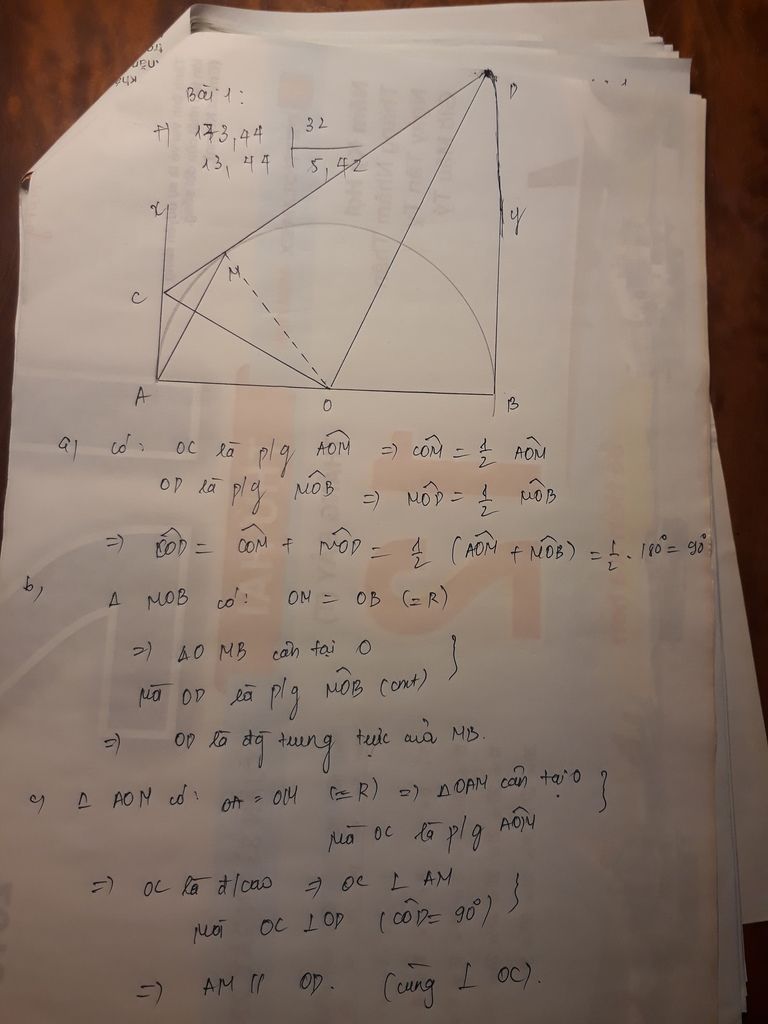 Bài 1:
+) 173,44 | 32
13, 44 5,42
D
x
y
M
C
A
O
B
a) có: OC là p/g AOM̂ => COM̂ = 1/2 AOM̂
OD là p/g MOB̂ => MOD̂ = 1/2 MOB̂
=> COD̂ = COM̂ + MOD̂ = 1/2 (AOM̂ + MOB̂) = 1/2 . 180° = 90°
b, Δ MOB có: OM = OB (=R)
=> ΔO MB cân tại O }
mà OD là p/g MOB̂ (cmt)
=> OD là đg trung trực của MB.
c) Δ AOM có: OA = OM (=R) => ΔOAM cân tại O }
mà OC là p/g AOM̂
=> OC là đ/cao => OC ⊥ AM }
mà OC ⊥ OD (COD̂ = 90°)
=> AM // OD. (cùng ⊥ OC).